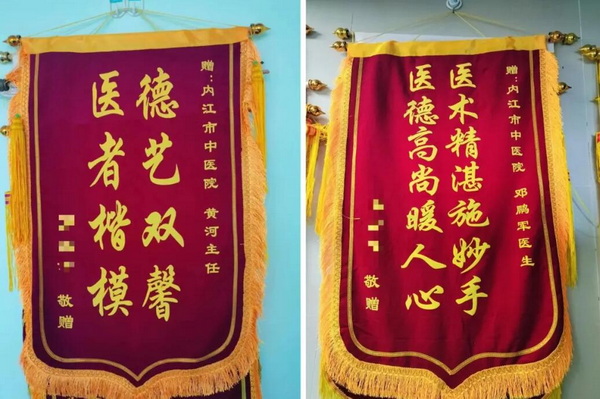 赠:内江市中医院 黄河主任
德艺双馨
医者楷模
敬赠
赠:内江市中医院 邓鹏军医生
医术精湛施妙手
医德高尚暖人心
敬赠